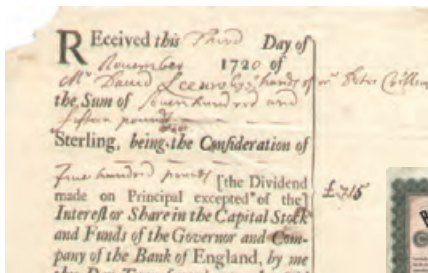 REceived this Third Day of
November 1720 of
Mr David Leeuw by ye hands of mr Peter
the Sum of seven hundred and
fifteen pounds
Sterling, being the Consideration of
Five hundred pounds [the Dividend
made on Principal excepted of the]
£715
Interest or Share in the Capital Stock
and Funds of the Governor and Com-
pany of the Bank of England, by me